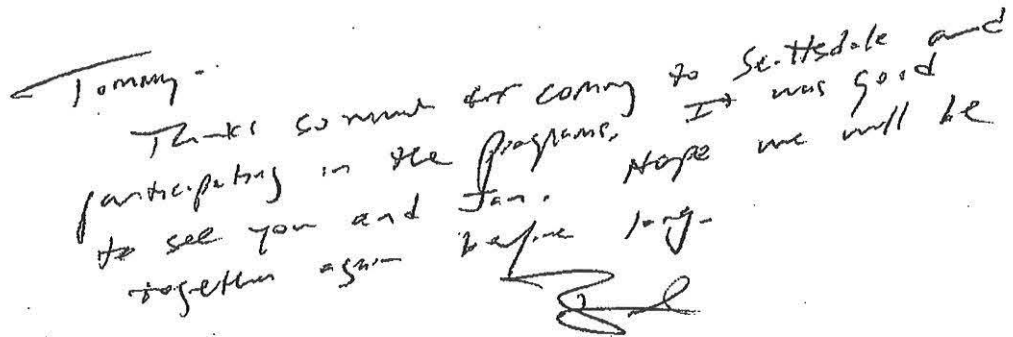 Tommy-
Thanks so much for coming to Scottsdale and
participating in the programs. It was good
to see you and Jan. Hope we will be
together again before long-